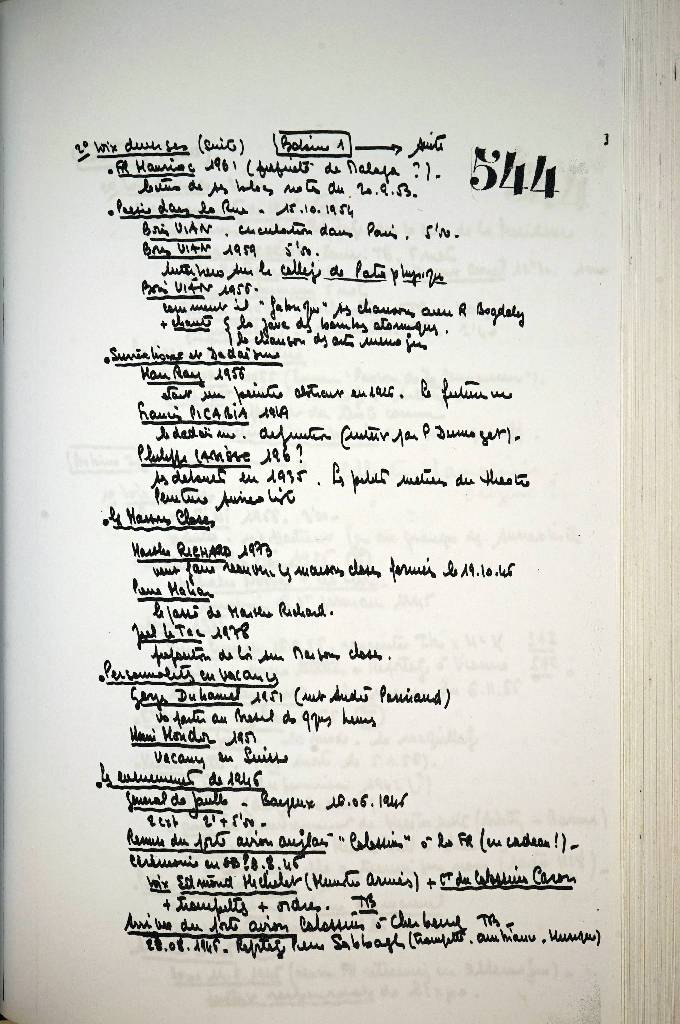 2° voix diverses (suite) Bobine 1 → suite
544
. FR Mauriac 1961 (propriété de Malagar ?).
lecture de ses blocs notes du. 20.9.53.
. Poésie dans la Rue. 15.10.1954
Boris VIAN. circulation dans Paris. 5'50.
Boris VIAN 1959 5'50.
interview sur le collège de Pataphysique
Boris VIAN 1955.
comment il "fabrique" ses chansons avec R Bogdaly
+ chante { la java des bombes atomiques.
la chanson des arts ménagers
. Surréalisme et Dadaïsme
Man Ray 1956
était un peintre abstrait en 1916. Le futurisme
Francis PICABIA 1949
le dadaïsme. définition (interv par P Dumayet).
Philippe 196?
ses débuts en 1935. Les petits métiers du théâtre
Peinture surréaliste
. les Maisons Closes
Marthe RICHARD 1973
veut faire réouvrir les maisons closes fermées le 19.10.46
Pierre
le passé de Marthe Richard.
Joel le Tac 1978
proposition de loi sur Maison closes.
. Personnalités en vacances
Georges Duhamel 1951 (int André Parinaud)
va partir au Brésil de qques heures
Henri Mondor 1951
vacances en Suisse
. les evenements de 1946
General de Gaulle. Bayeux 16.06.1946
2 ext 2' + 5'50.
Remise du porte avion anglais "Colossus" à la FR (en cadeau !).
Cérémonie en GB 8.46
voix Edmond Michelet (Ministre Armées) + Ct du Colossus Caron
+ trompettes + ordres. TB
Arrivée du porte avion Colossus à Cherbourg TB.
28.08.1946. Reptage Pierre Sabbagh (trompette. ambiance. Musique)